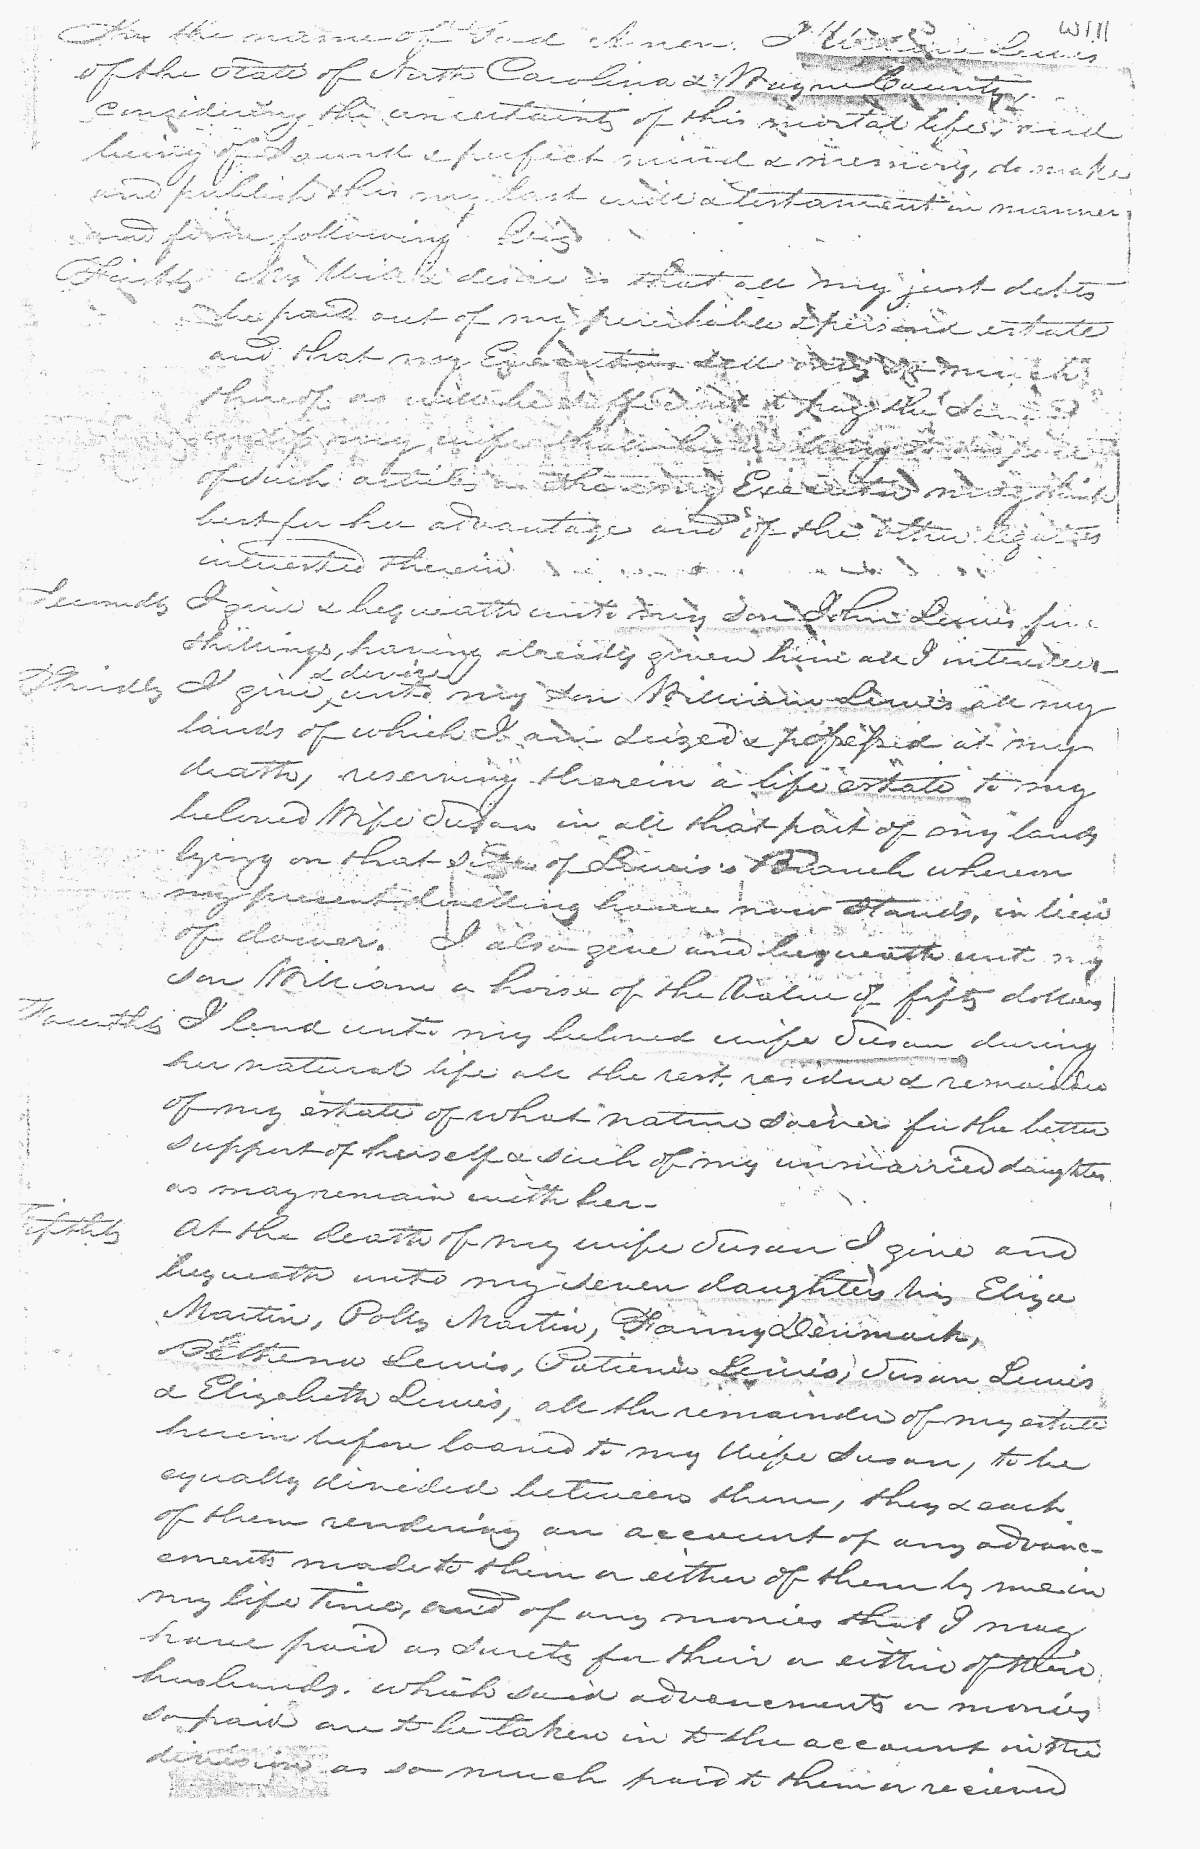 Will
In the name of God Amen. I William Lewis
of the State of North Carolina & Wayne County,
considering the uncertainty of this mortal life, and
being of Sound & perfect mind & memory, do make
and publish this my last will & testament in manner
and form following Viz
Firstly My Will & desire is that all my just debts
be paid out of my perishable & personal estate
and that my Executors sell only so much
thereof as will be sufficient to pay the same
my wife shall be willing to
of such articles as the my Executor may think
best for her advantage and of the other legatees
interested therein
Secondly I give & bequeath unto my Son John Lewis five
shillings, having already given him all I intended
Thirdly I give & devise unto my Son William Lewis all my
lands of which I am seized & possessed at my
death, reserving therein a life estate to my
beloved Wife Susan in all that part of my lands
lying on that side of Lewis's Branch wherein
my present dwelling house now stands, in lieu
of dower. I also give and bequeath unto my
son William a horse of the Value of fifty dollars
Fourthly I lend unto my beloved wife Susan during
her natural life all the rest, residue & remainder
of my estate of what nature soever for the better
support of herself & such of my unmarried daughters
as may remain with her.
Fifthly At the death of my wife Susan I give and
bequeath unto my seven daughters Viz Eliza
Martin, Polly Martin, Fanny Denmark,
Lewis, Patience Lewis, Susan Lewis
& Elizabeth Lewis, all the remainder of my estate
herein before loaned to my Wife Susan, to be
equally divided between them, they & each
of them rendering an account of any advanc-
ements made to them or either of them by me in
my life time, and of any monies that I may
have paid as surety for their or either of their
husbands. which said advancements or monies
so paid are to be taken in to the account in the
division as so much paid to them or recieved